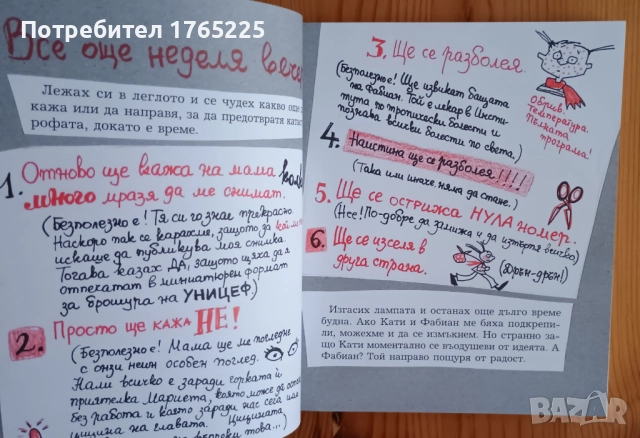 Потребител 1765225
Все още неделя вечер
Лежах си в леглото и се чудех какво още
кажа или да направя, за да предотвратя катас
рофата, докато е време.
1. Отново ще кажа на мама, колко
много мразя да ме снимат.
(Безполезно е! Тя си го знае прекрасно.
Наскоро пак се карахме, защото
искаше да публикува моя снимка.
Тогава казах ДА, защото щяха да я
отпечатат в миниатюрен формат
за брошура на УНИЦЕФ)
2. Просто ще кажа НЕ!
(Безполезно е! Мама ще ме погледне
с онзи неин особен поглед.
Нали всичко е заради горката ѝ
приятелка Мариета, която може да остане
без работа и която заради нас сега има
цицина на главата. Цицината
това...)
3. Ще се разболея.
(Безполезно е! Ще извикат бащата
на Фабиан. Той е лекар в Инсти-
тута по тропически болести и
познава всички болести по света.)
Обрив.
Температура.
Пълната
програма!
4. Наистина ще се разболея!!!!
(Така или иначе няма да стане.)
5. Ще се острижа НУЛА номер.
(Нее! По-добре да замижа и да изтърпя всичко)
6. Ще се изселя в
друга страна.
(Дрън-дрън!)
Изгасих лампата и останах още дълго време
будна. Ако Кати и Фабиан ме бяха подкрепи-
ли, можехме и да се измъкнем. Но странно за-
що Кати моментално се въодушеви от идеята. А
Фабиан? Той направо пощуря от радост.
BAZAR.BG